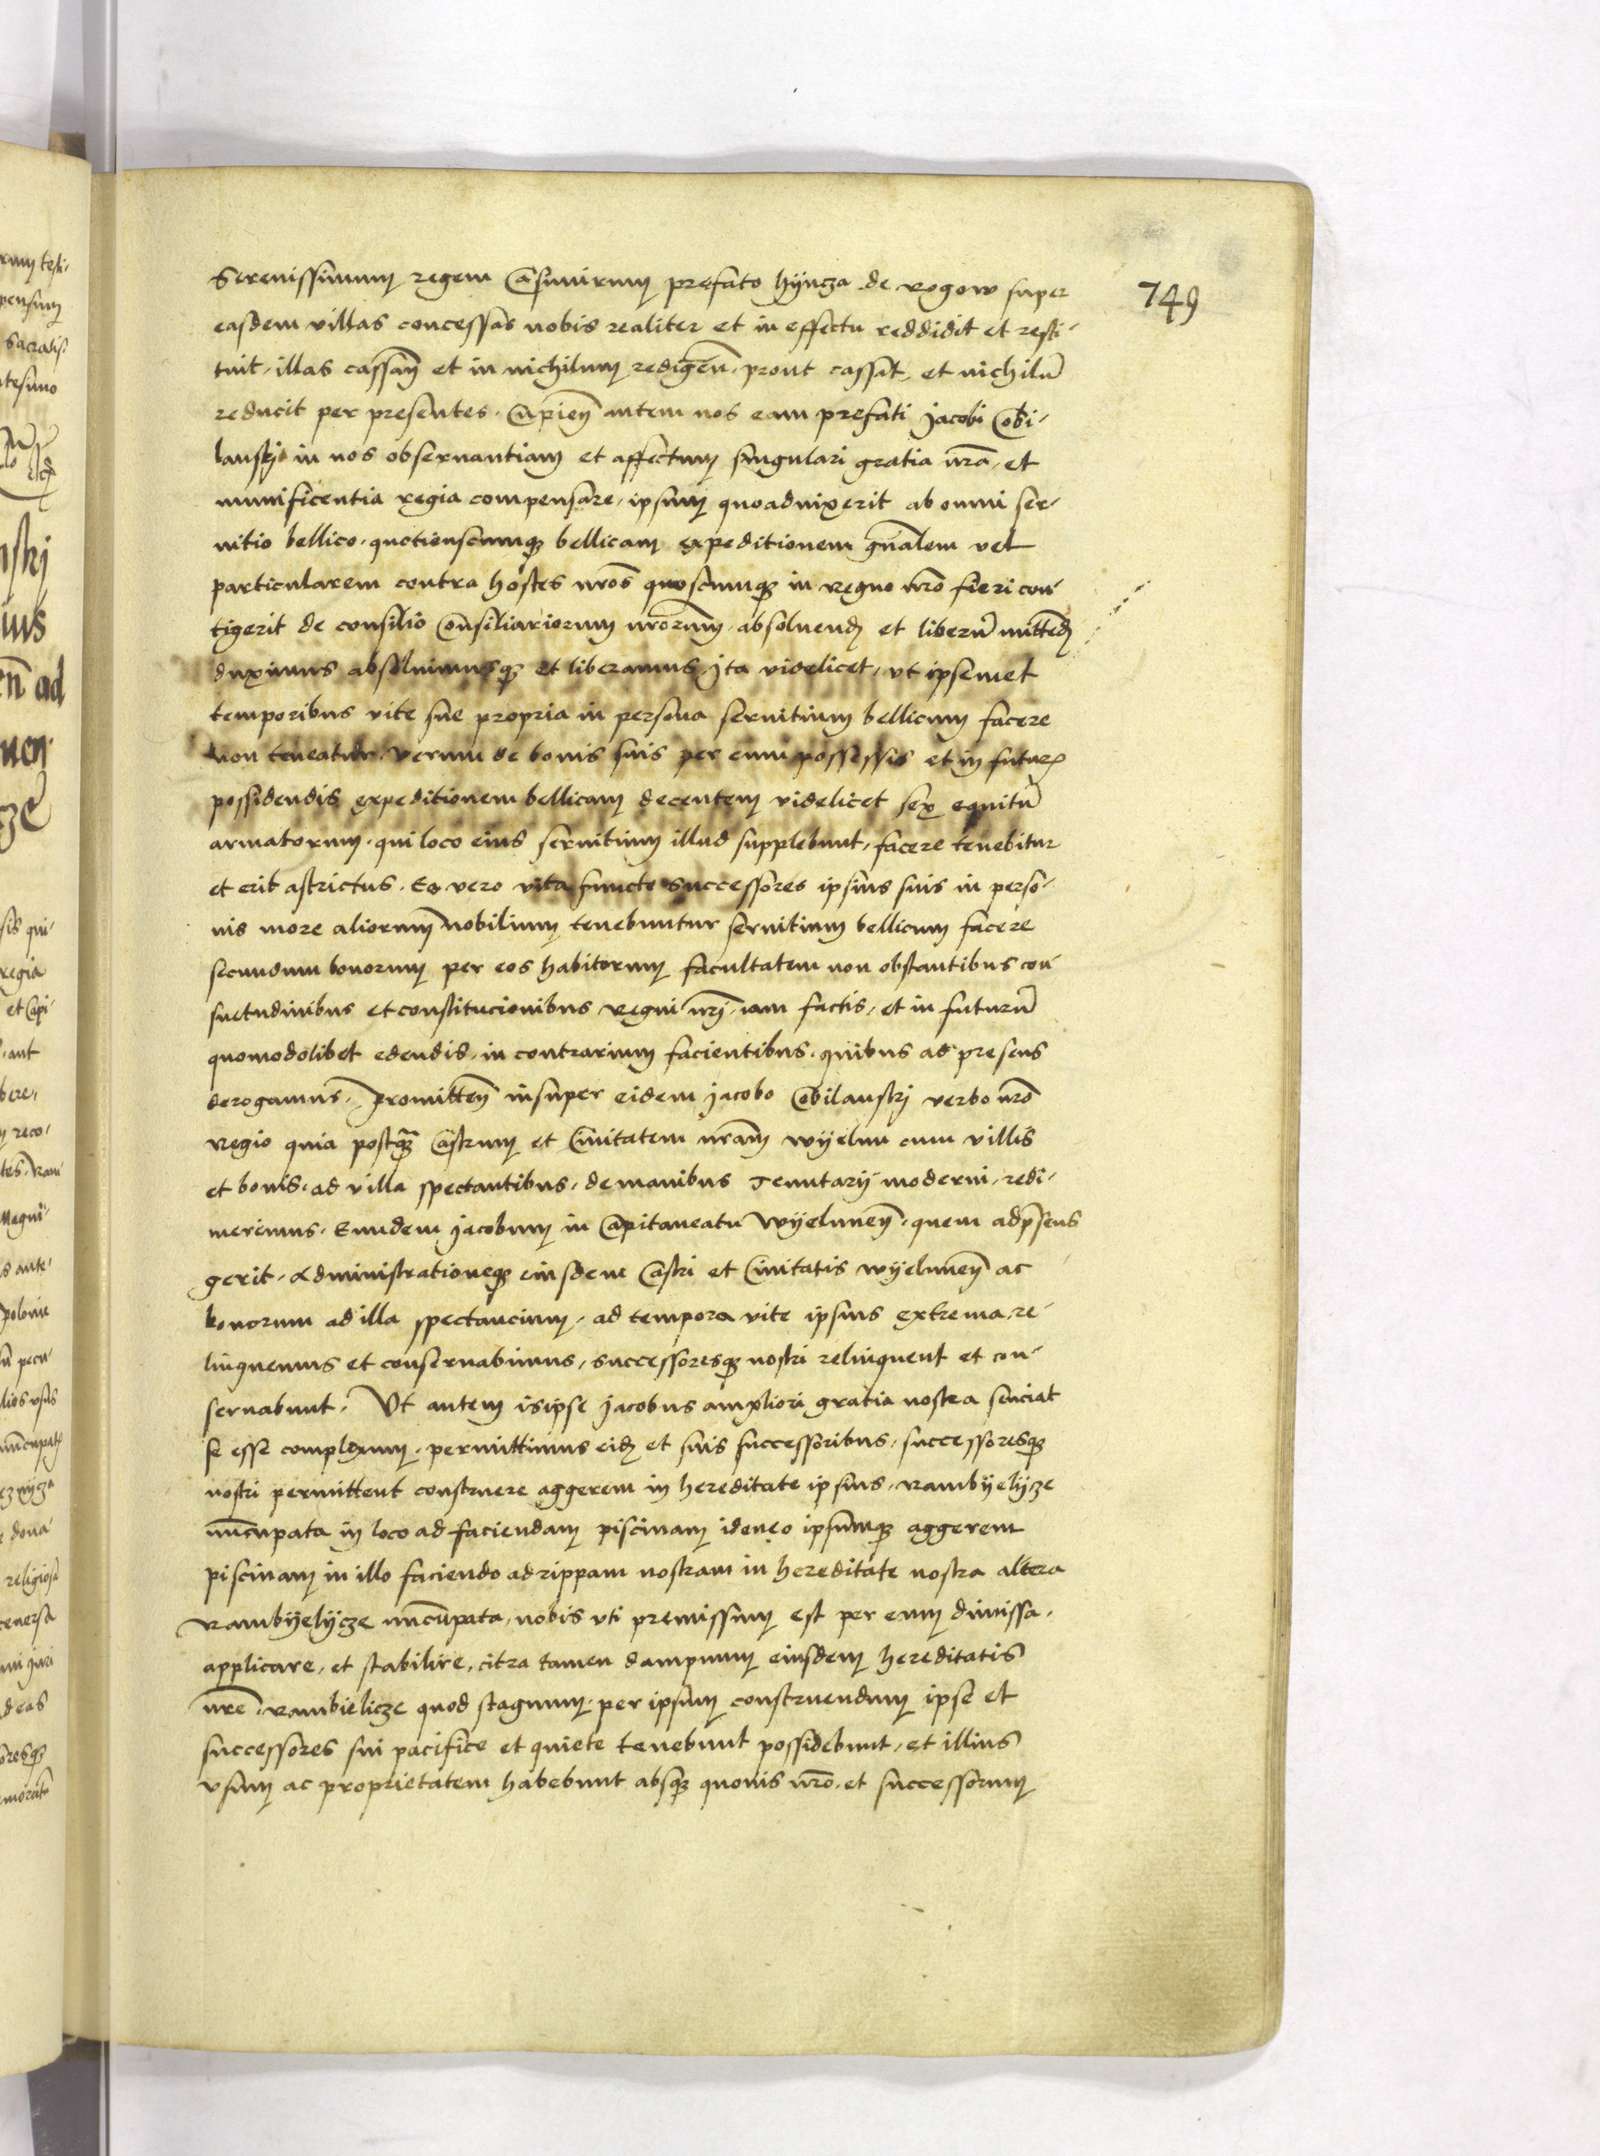 749
Serenissimum regem Casimirum prefato hÿncza de rogow super
easdem villas concessas nobis realiter et in effectu reddidit et resti-
tuit, illas cassan̄ et in nichilum redigen̄, prout cassat, et nichilū
reducit per presentes. Cupien̄ autem nos eam prefati Jacobi Cobi-
lanskj in nos obseruantiam et affectum singulari gratia nr̄a, et
munificentia regia compensare, ipsum quoaduixerit ab omni ser-
uitio bellico, quotienscumq3 bellicam expeditionem gn̄alem vel
particularem contra hostes nr̄os quoscumq3 in regno nr̄o fieri con-
tigerit de consilio Consiliariorum nr̄orum, absoluend̄ et liberū mittend̄
duximus absoluimusq3 et liberamus, Jta videlicet, vt ipsemet
temporibus vite sue propria in persona seruitium bellicum facere
non teneatur. verum de bonis suis per eum possessis et in futur̄
possidendis expeditionem bellicam decentem videlicet sex equitū
armatorum, qui loco eius seruitium illud supplebunt, facere tenebitur
et erit astrictus. Eo vero vita functo successores ipsius suis in perso-
nis more aliorum nobilium tenebuntur seruitium bellicum facere
secundum bonorum per eos habitorum facultatem non obstantibus con-
suetudinibus et constitucionibus regni nr̄j iam factis, et in futurū
quomodolibet edendis, in contrarium facientibus, quibus ad presens
derogamus. Promitten̄ insuper eidem Jacobo Cobilanskj verbo nr̄o
regio quia postq̄3 Castrum et Ciuitatem nr̄am wÿelun cum villis
et bonis, ad villa spectantibus, de manibus Tenutarÿ moderni, redi-
merimus. Eundem Jacobum in Capitaneatu wÿelunen̄, quem ad p̄sens
gerit, Administrationeq3 eiusdem Castri et Ciuitatis wÿelunen̄ ac
bonorum ad illa spectancium, ad tempora vite ipsius extrema, re-
linquemus et conseruabimus, successoresq3 nostri relinquent et con-
seruabunt. Vt autem is ipse Jacobus ampliori gratia nostra senciat
se esse complexum, permittimus eid̄ et suis successoribus, successoresq3
nostri permittent construere aggerem in hereditate ipsius, rambÿelÿcze
nūcupata in loco ad faciendam piscinam idoneo ipsumq3 aggerem
piscinam in illo faciendo ad rippam nostram in hereditate nostra altera
rambÿelÿcze nūcupata, nobis vti premissum est per eum dimissa,
applicare, et stabilire, citra tamen dampnum eiusdem hereditatis
nr̄e, rambielicze quod stagnum, per ipsum construendum ipse et
successores sui pacifice et quiete tenebunt possidebunt, et illius
vsum ac proprietatem habebunt absq3 quouis nr̄o, et successorum